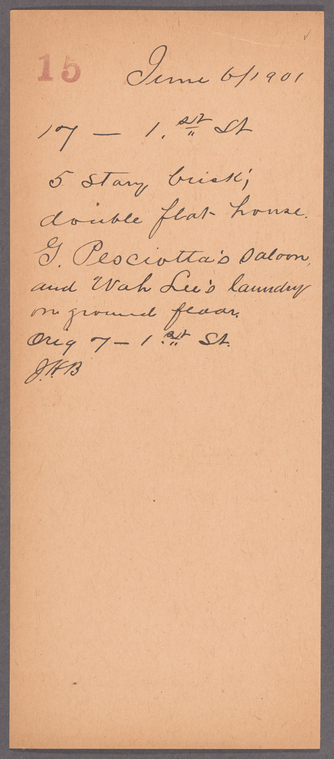 15
June 6/1901
17 — 1.st St
5 story brick;
double flat house.
G. Pesciotta's saloon,
and Wah Lee's laundry
on ground floor,
Orig 7 — 1.st St.
J.H.B